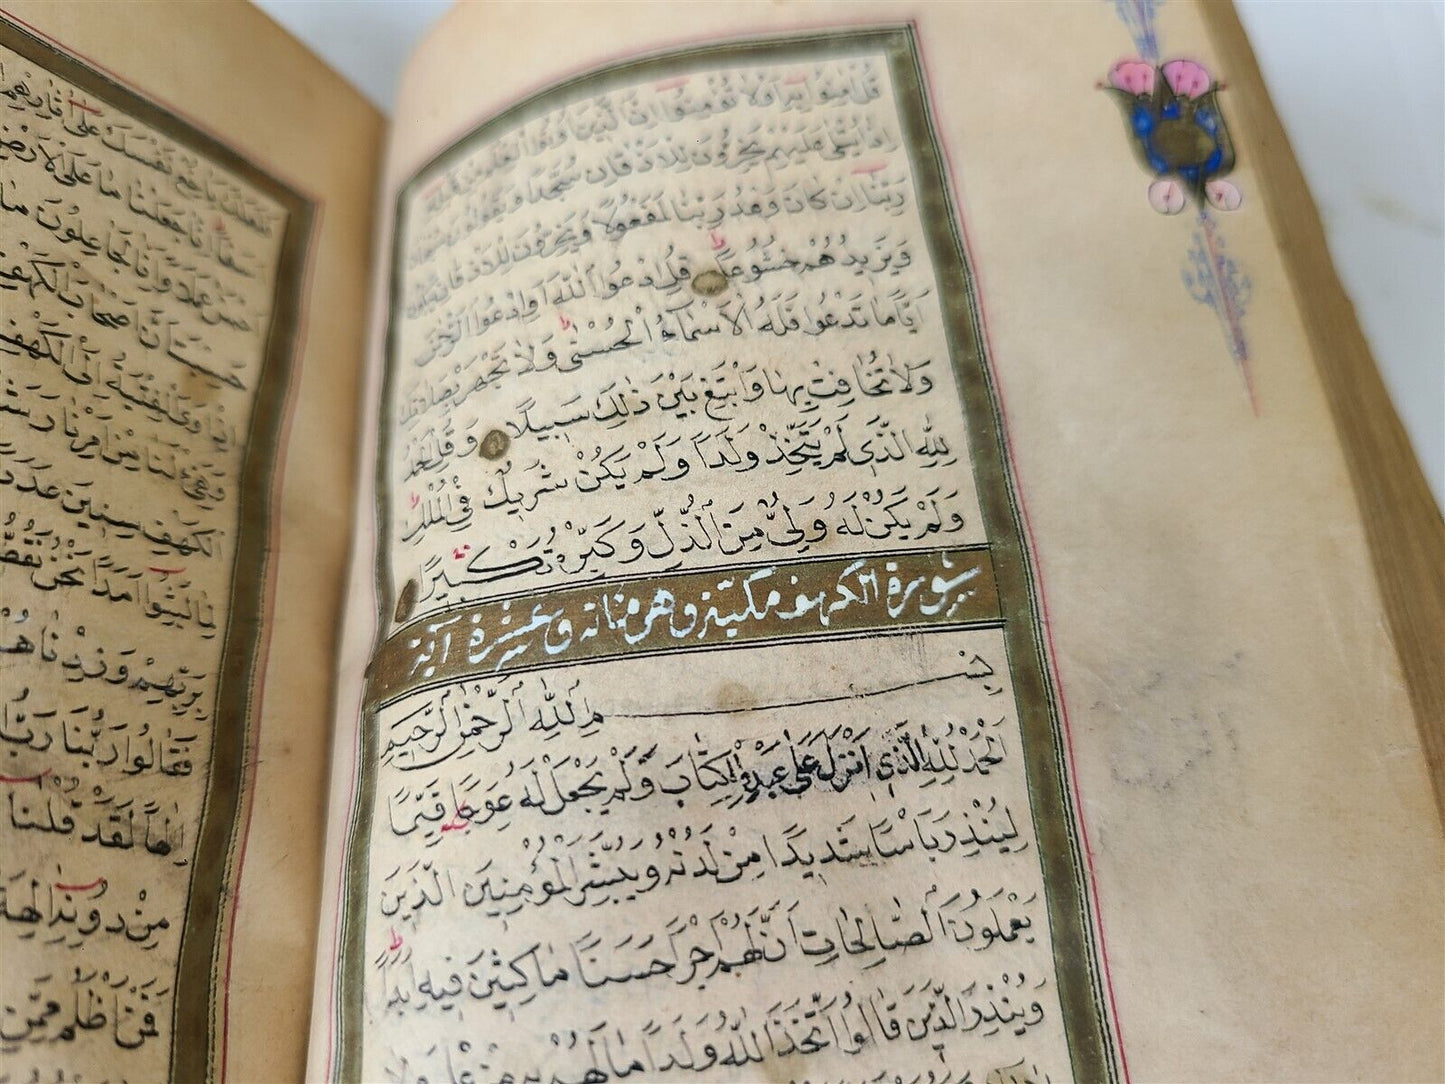 قُلْ اٰمِنُوا بِهِ اَوْلَا تُؤْمِنُوا اِنَّ الَّذِينَ اُوتُوا الْعِلْمَ مِنْ قَبْلِهِ
اِذَا يُتْلٰى عَلَيْهِمْ يَخِرُّونَ لِلْاَذْقَانِ سُجَّدًا وَيَقُولُونَ سُبْحَانَ
رَبِّنَا اِنْ كَانَ وَعْدُ رَبِّنَا لَمَفْعُولًا وَيَخِرُّونَ لِلْاَذْقَانِ
وَيَزِيدُهُمْ خُشُوعًا قُلِ ادْعُوا اللّٰهَ اَوِ ادْعُوا الرَّحْمٰنَ
اَيًّا مَا تَدْعُوا فَلَهُ الْاَسْمَآءُ الْحُسْنٰى وَلَا تَجْهَرْ بِصَلَاتِكَ
وَلَا تُخَافِتْ بِهَا وَابْتَغِ بَيْنَ ذٰلِكَ سَبِيلًا وَقُلِ الْحَمْدُ
لِلّٰهِ الَّذِي لَمْ يَتَّخِذْ وَلَدًا وَلَمْ يَكُنْ شَرِيكٌ فِي الْمُلْكِ
وَلَمْ يَكُنْ لَهُ وَلِيٌّ مِنَ الذُّلِّ وَكَبِّرْهُ تَكْبِيرًا
سورة الكهف مكية وهى مائة وعشرة آية
بِسْمِ اللّٰهِ الرَّحْمٰنِ الرَّحِيمِ
اَلْحَمْدُ لِلّٰهِ الَّذِي اَنْزَلَ عَلٰى عَبْدِهِ الْكِتَابَ وَلَمْ يَجْعَلْ لَهُ عِوَجًا قَيِّمًا
لِيُنْذِرَ بَاْسًا شَدِيدًا مِنْ لَدُنْهُ وَيُبَشِّرَ الْمُؤْمِنِينَ الَّذِينَ
يَعْمَلُونَ الصَّالِحَاتِ اَنَّ لَهُمْ اَجْرًا حَسَنًا مَاكِثِينَ فِيهِ اَبَدًا
وَيُنْذِرَ الَّذِينَ قَالُوا اتَّخَذَ اللّٰهُ وَلَدًا مَا لَهُمْ بِهِ مِنْ عِلْمٍ وَلَا
فَلَعَلَّكَ بَاخِعٌ نَفْسَكَ عَلٰى اٰثَارِهِمْ
اَسَفًا اِنَّا جَعَلْنَا مَا عَلَى الْاَرْضِ
اَحْسَنُ عَمَلًا وَاِنَّا لَجَاعِلُونَ مَا
حَسِبْتَ اَنَّ اَصْحَابَ الْكَهْفِ
اِذْ اَوَى الْفِتْيَةُ اِلَى الْكَهْفِ
وَهَيِّئْ لَنَا مِنْ اَمْرِنَا رَشَ
الْكَهْفِ سِنِينَ عَدَدًا
لِمَا لَبِثُوا اَمَدًا نَحْنُ نَقُصُّ
بِرَبِّهِمْ وَزِدْنَاهُ
فَقَالُوا رَبُّنَا رَبُّ
اِلٰهًا لَقَدْ قُلْنَا
مِنْ دُونِهِ اٰلِهَةً
فَمَنْ اَظْلَمُ مِمَّنِ